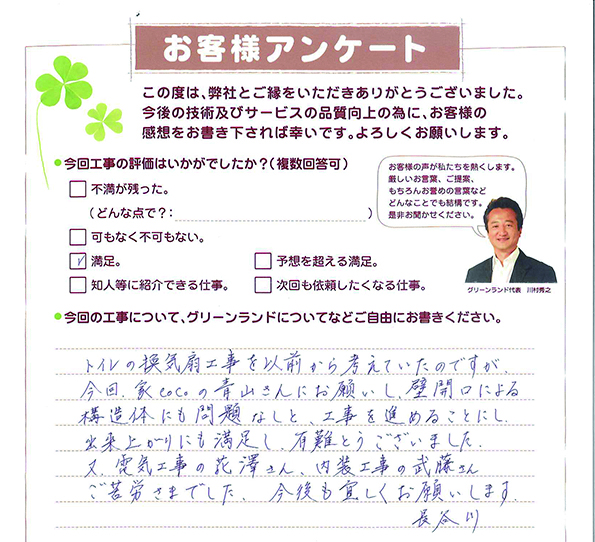 お客様アンケート
この度は、弊社とご縁をいただきありがとうございました。
今後の技術及びサービスの品質向上の為に、お客様の
感想をお書き下されば幸いです。よろしくお願いします。
●今回工事の評価はいかがでしたか?(複数回答可)
□不満が残った。
(どんな点で?: )
□可もなく不可もない。
☑満足。
□予想を超える満足。
□知人等に紹介できる仕事。
□次回も依頼したくなる仕事。
お客様の声が私たちを熱くします。
厳しいお言葉、ご提案、
もちろんお誉めの言葉など
どんなことでも結構です。
是非お聞かせください。
グリーンランド代表 川村秀之
●今回の工事について、グリーンランドについてなどご自由にお書きください。
トイレの換気扇工事を以前から考えていたのですが、
今回、家cocoの青山さんにお願いし、壁開口による
構造体にも問題なしと、工事を進めることにし、
出来上がりにも満足し、有難とうございました。
又、電気工事の花澤さん、内装工事の武藤さん
ご苦労さまでした、今後も宜しくお願いします。
長谷川